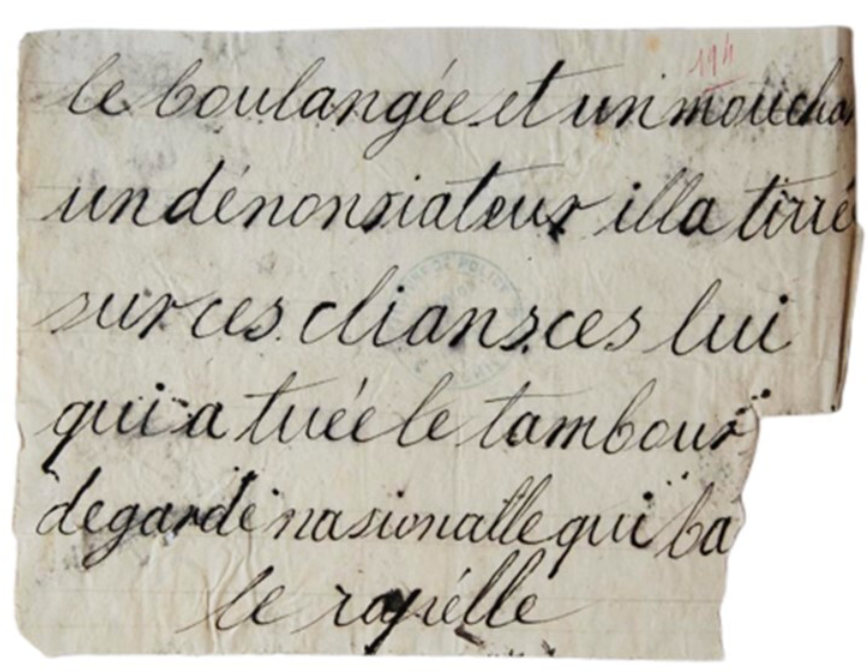 194
le boulangée et un mouchar
un dénonsiateur illa tirré
sur ces clians ces lui
qui a tuée le tambour
de garde nasionalle qui ba
le rapélle